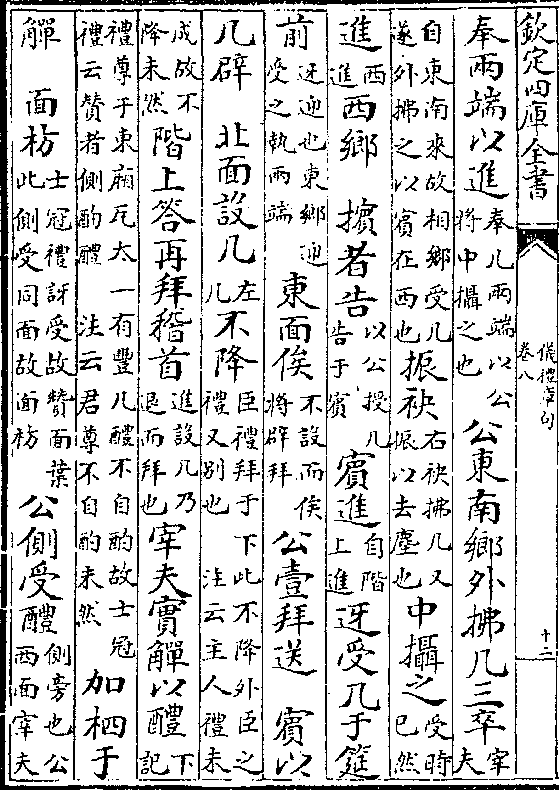 欽定四庫全書
儀禮章句
卷八
十二
奉兩端以進奉几兩端以公將中攝之也公東南鄉外拂几三卒宰夫
自東南來故相鄉受几遂外拂之以賓在西也振袂右袂拂几又振以去塵也中攝之受時已然
進西進西鄉 擯者告以公授几告于賓賓進自階上進迓受几于筵
前迓迎也東鄉迎受之執兩端東面俟不設而俟將辟拜公壹拜送 賓以
几辟 北面設几左几不降臣禮拜于下此不降外臣之禮又別也 注云主人禮未
成故不降未然階上答再拜稽首進設几乃退而拜也宰夫實觶以醴下記
禮尊于東廂瓦大一有豐凡醴不自酌故士冠禮云贊者側酌醴 注云君尊不自酌未然加柶于
觶 面枋士冠禮訝受故贊面葉此側受同面故面枋公側受醴側旁也公西面宰夫